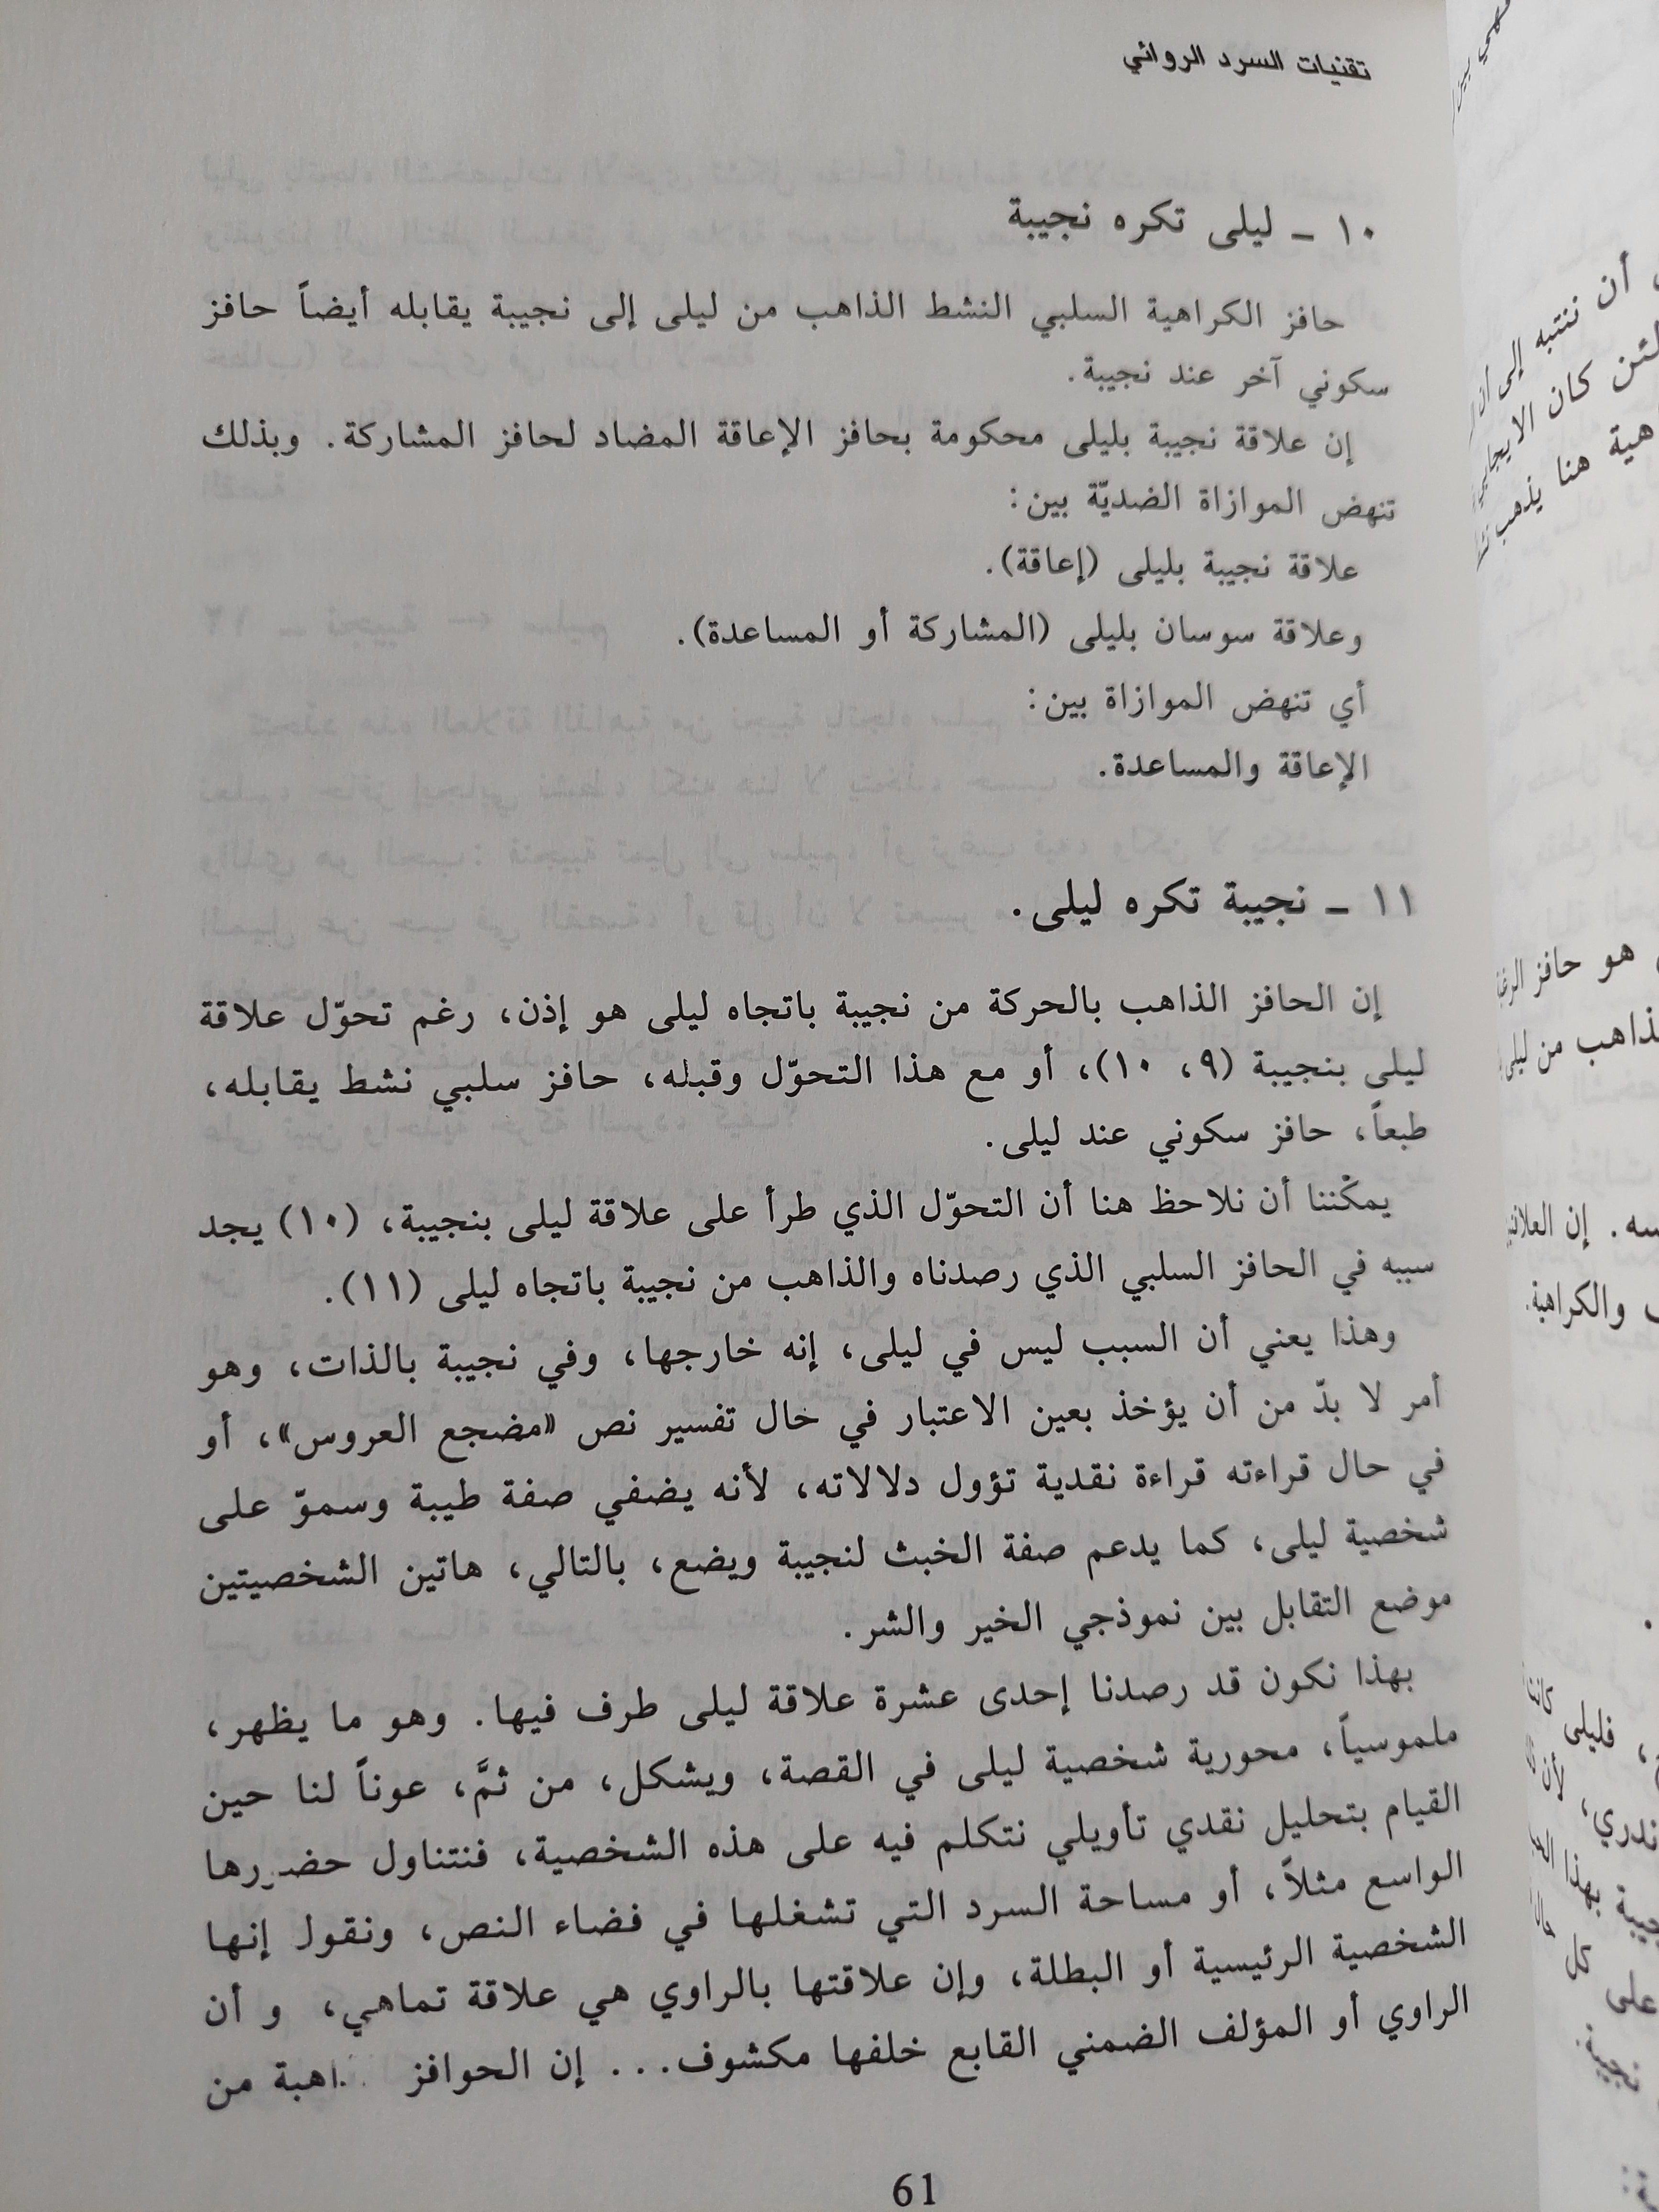 تقنيات السرد الروائي
١٠ ـ ليلى تكره نجيبة
حافز الكراهية السلبي النشط الذاهب من ليلى إلى نجيبة يقابله أيضاً حافز
سكوني آخر عند نجيبة.
إن علاقة نجيبة بليلى محكومة بحافز الإعاقة المضاد لحافز المشاركة. وبذلك
تنهض الموازاة الضديّة بين:
علاقة نجيبة بليلى (إعاقة).
وعلاقة سوسان بليلى (المشاركة أو المساعدة).
أي تنهض الموازاة بين:
الإعاقة والمساعدة.
١١ ـ نجيبة تكره ليلى.
إن الحافز الذاهب بالحركة من نجيبة باتجاه ليلى هو إذن، رغم تحوّل علاقة
ليلى بنجيبة (٩، ١٠)، أو مع هذا التحوّل وقبله، حافز سلبي نشط يقابله،
طبعاً، حافز سكوني عند ليلى.
يمكْننا أن نلاحظ هنا أن التحوّل الذي طرأ على علاقة ليلى بنجيبة، (١٠) يجد
سببه في الحافز السلبي الذي رصدناه والذاهب من نجيبة باتجاه ليلى (١١).
وهذا يعني أن السبب ليس في ليلى، إنه خارجها، وفي نجيبة بالذات، وهو
أمر لا بدّ من أن يؤخذ بعين الاعتبار في حال تفسير نص «مضجع العروس»، أو
في حال قراءته قراءة نقدية تؤول دلالاته، لأنه يضفي صفة طيبة وسموّ على
شخصية ليلى، كما يدعم صفة الخبث لنجيبة ويضع، بالتالي، هاتين الشخصيتين
موضع التقابل بين نموذجي الخير والشر.
بهذا نكون قد رصدنا إحدى عشرة علاقة ليلى طرف فيها. وهو ما يظهر،
ملموسياً، محورية شخصية ليلى في القصة، ويشكل، من ثمَّ، عوناً لنا حين
القيام بتحليل نقدي تأويلي نتكلم فيه على هذه الشخصية، فنتناول حضورها
الواسع مثلاً، أو مساحة السرد التي تشغلها في فضاء النص، ونقول إنها
الشخصية الرئيسية أو البطلة، وإن علاقتها بالراوي هي علاقة تماهي، و أن
الراوي أو المؤلف الضمني القابع خلفها مكشوف... إن الحوافز من
61